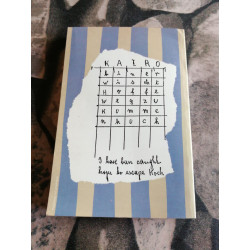 K A I R O
b i n e r
h o f f e
w e g z u
k o m m e
n k o c h
I have been caught
hope to escape Koch